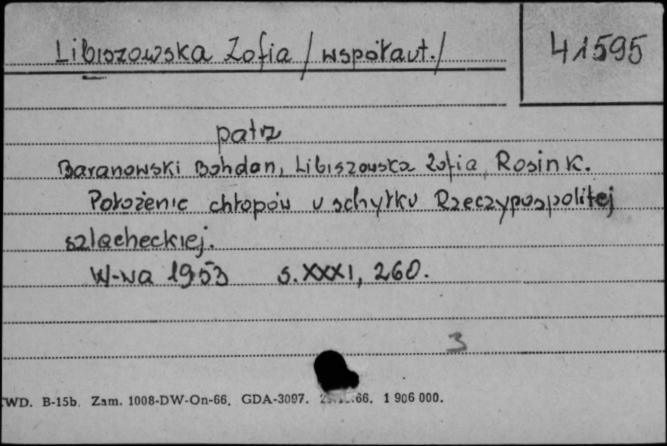 Libiszowska Zofia /współaut./
41595
patrz
Baranowski Bohdan, Libiszowska Zofia, Rosin K.
Położenie chłopów u schyłku Rzeczypospolitej
szlacheckiej.
W-wa 1953 s. XXXI, 260.
3
WD. B-15b. Zam. 1008-DW-On-66. GDA-3097. .66. 1 906 000.